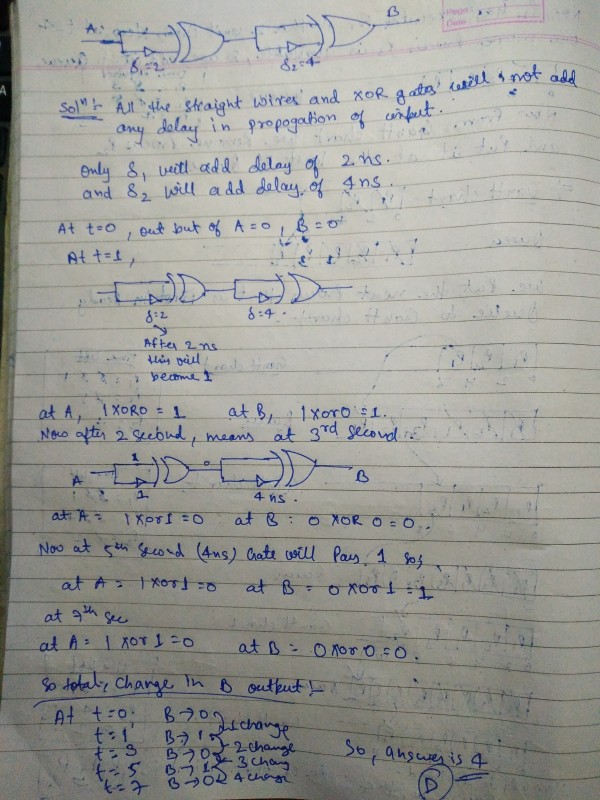 Page:
Date:
A B
δ₁=2 δ₂=4
Solⁿ:- All the straight wires and XOR gates will not add
any delay in propogation of input.
Only δ₁ will add delay of 2 ns.
and δ₂ will add delay of 4 ns.
At t=0, out but of A=0, B=0
At t=1,
δ=2 δ=4.
After 2 ns
this will
become 1
at A, 1 XOR 0 = 1 at B, 1 xor 0 = 1.
Now after 2 second, means at 3rd second.
1 0
A B
1 4 ns.
at A = 1 xor 1 = 0 at B = 0 XOR 0 = 0.
Now at 5th second (4ns) Gate will Pass 1 so,
at A = 1 xor 1 = 0 at B = 0 xor 1 = 1
at 7th sec
at A = 1 xor 1 = 0 at B = 0 xor 0 = 0.
So total, change in B output:-
At t=0, B→0
t=1 B→1 1 change
t=3 B→0 2 change
t=5 B→1 3 chang
t=7 B→0 4 change
So, answer is 4
(D)